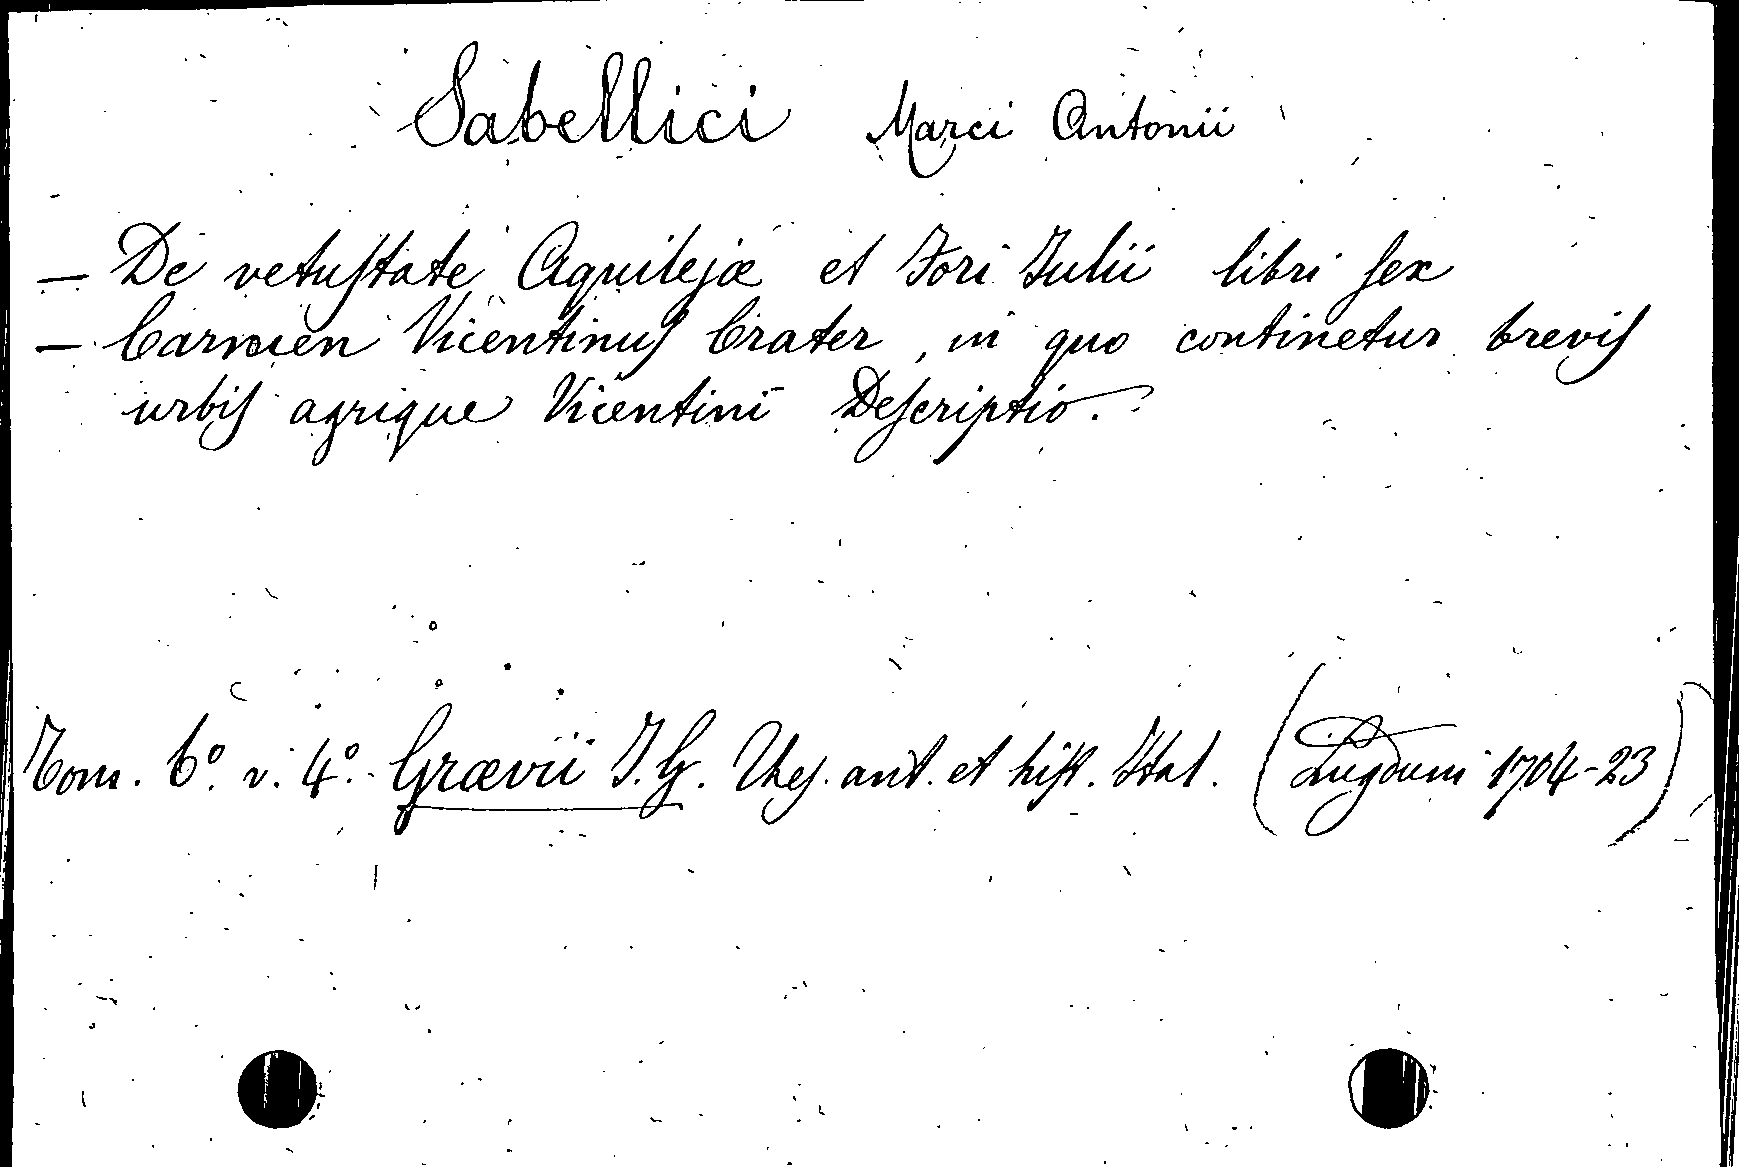 Sabellici Marci Antonii
— De vetuſtate Aquilejæ et Fori Julii libri ſex
— Carmen Vicentinuſ Crater, in quo continetur breviſ
urbiſ agrique Vicentini Deſcriptio.
Tom. 6º. v. 4º. Grævii J. G. Theſ. ant. et hiſt. Ital. (Lugduni 1704-23)